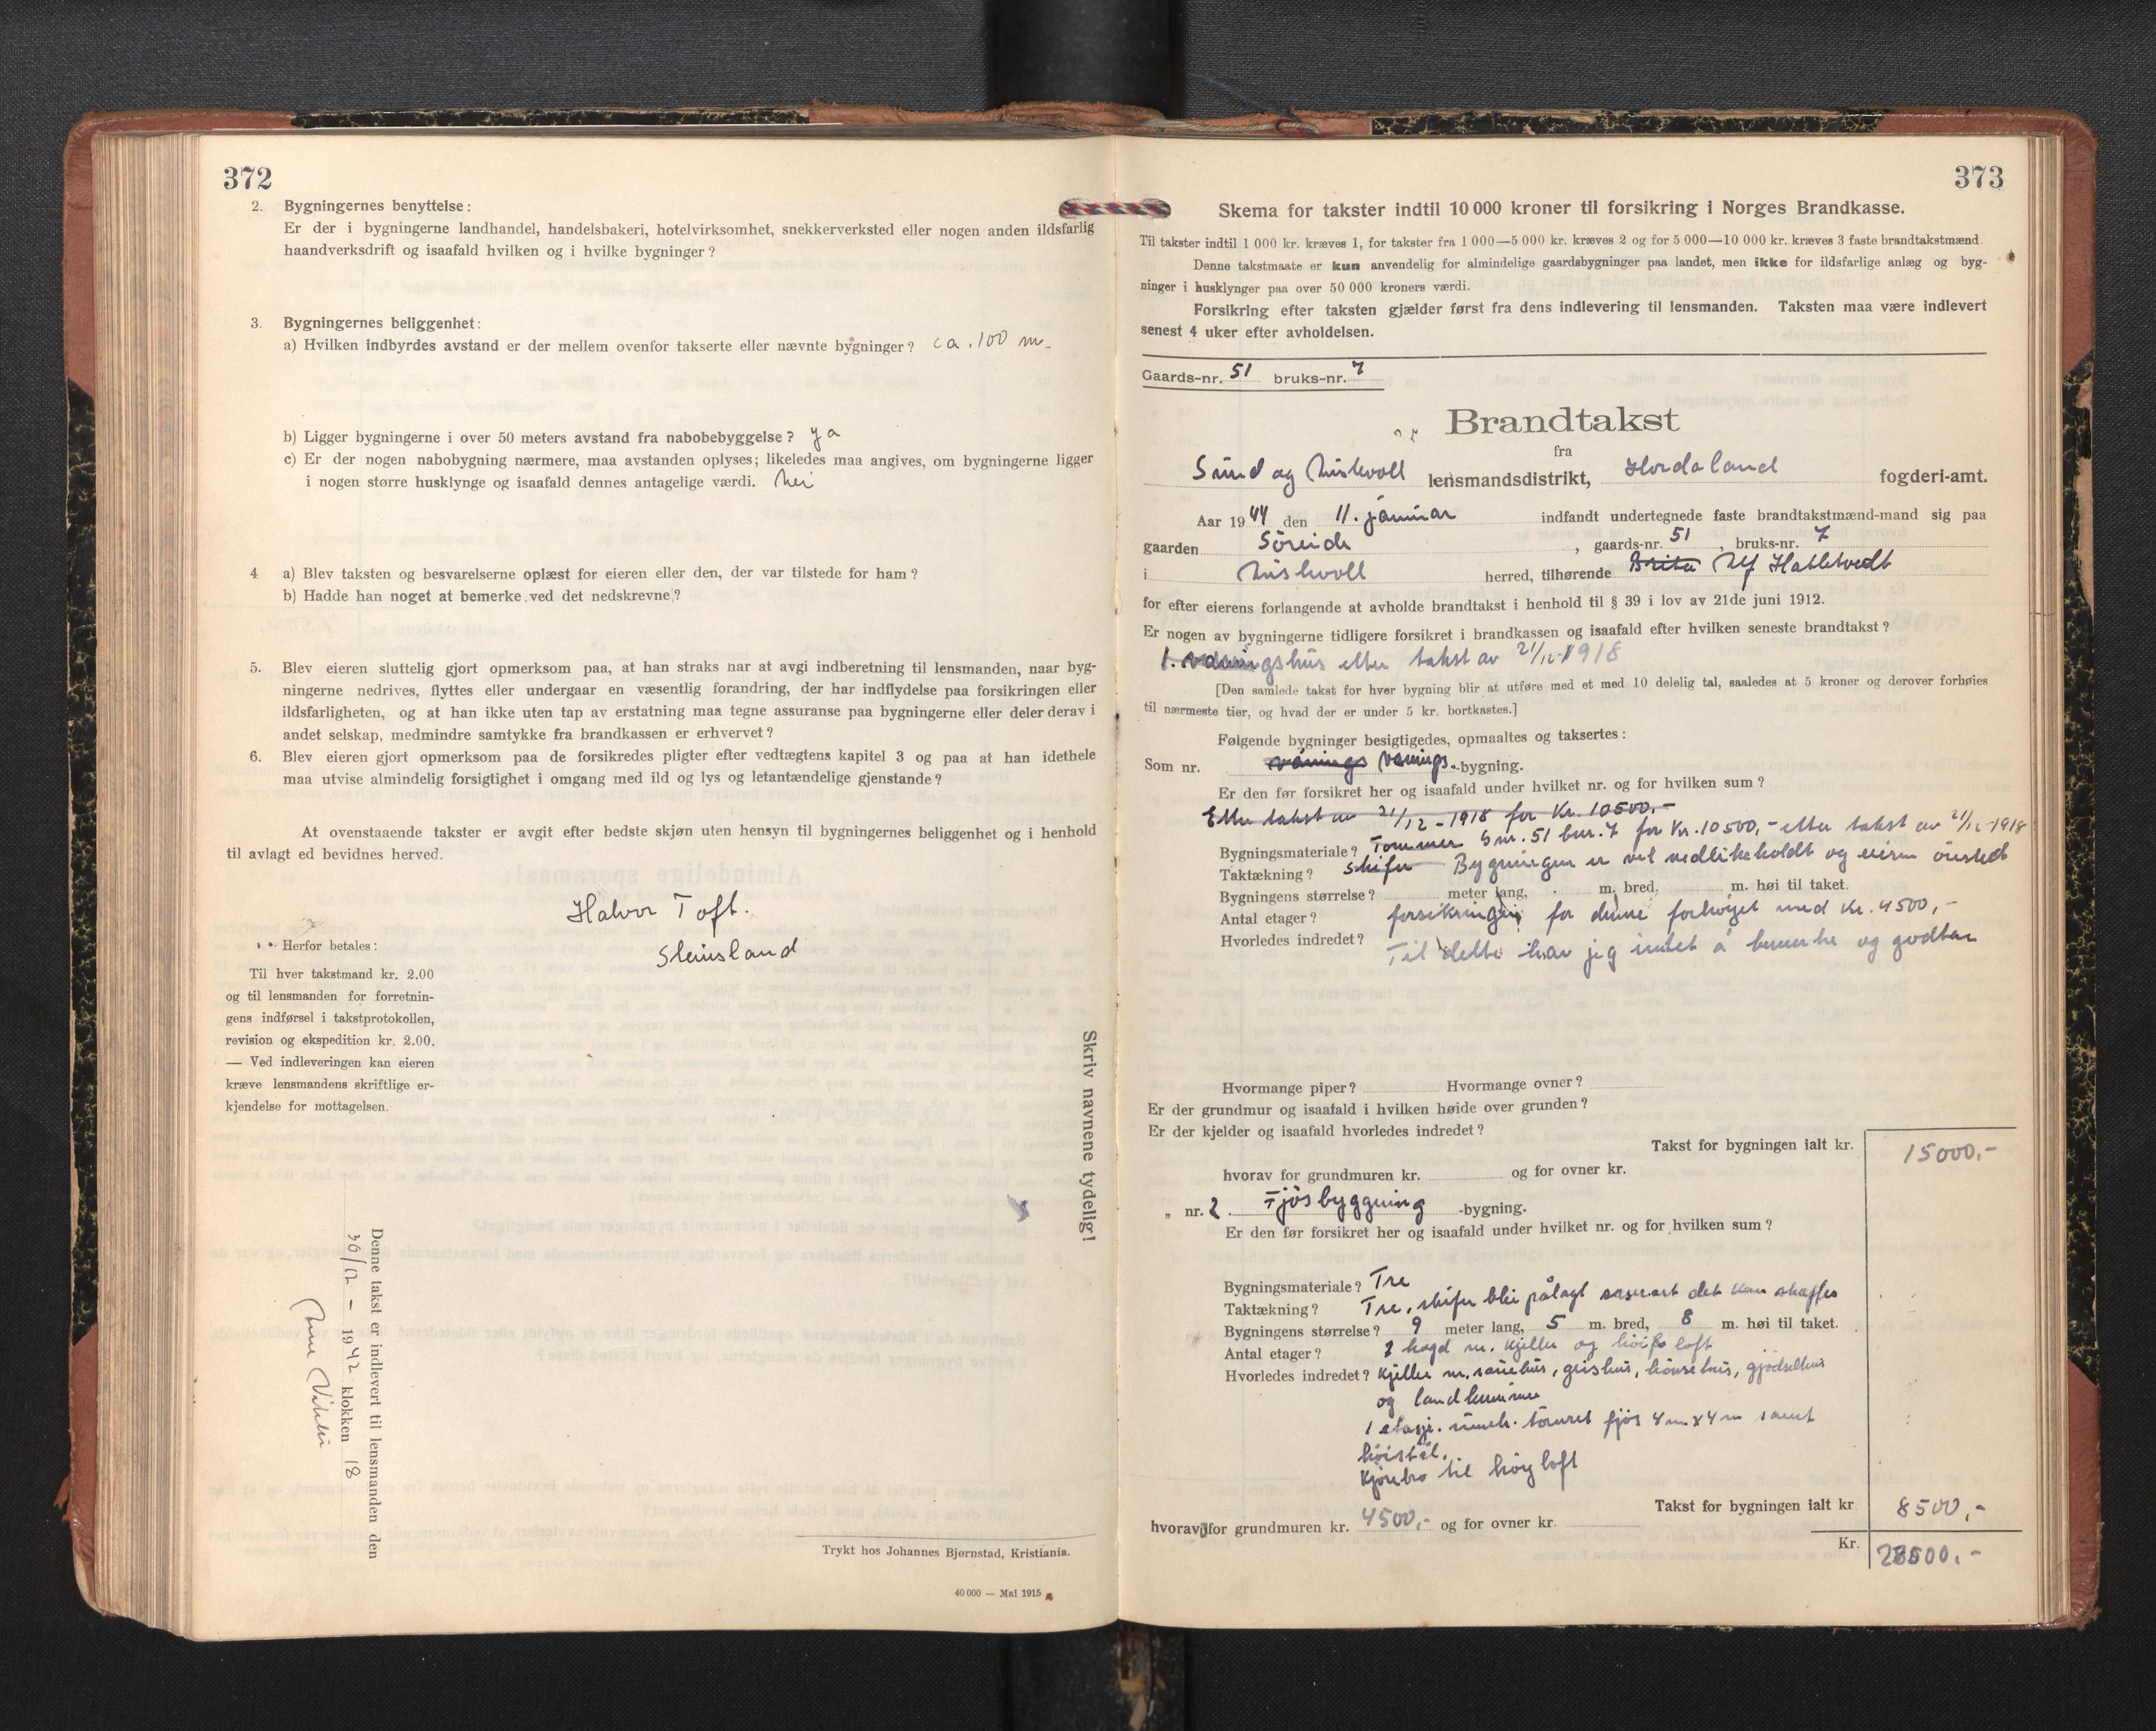 372
2. Bygningernes benyttelse:
Er der i bygningerne landhandel, handelsbakeri, hotelvirksomhet, snekkerverksted eller nogen anden ildsfarlig
haandverksdrift og isaafald hvilken og i hvilke bygninger?
3. Bygningernes beliggenhet:
a) Hvilken indbyrdes avstand er der mellem ovenfor takserte eller nævnte bygninger? ca. 100 m.
b) Ligger bygningerne i over 50 meters avstand fra nabobebyggelse? ja
c) Er der nogen nabobygning nærmere, maa avstanden oplyses; likeledes maa angives, om bygningerne ligger
i nogen større husklynge og isaafald dennes antagelige værdi. Nei
4 a) Blev taksten og besvarelserne oplæst for eieren eller den, der var tilstede for ham?
b) Hadde han noget at bemerke ved det nedskrevne?
5. Blev eieren sluttelig gjort opmerksom paa, at han straks nar at avgi indberetning til lensmanden, naar byg-
ningerne nedrives, flyttes eller undergaar en væsentlig forandring, der har indflydelse paa forsikringen eller
ildsfarligheten, og at han ikke uten tap av erstatning maa tegne assuranse paa bygningerne eller deler derav i
andet selskap, medmindre samtykke fra brandkassen er erhvervet?
6. Blev eieren gjort opmerksom paa de forsikredes pligter efter vedtægtens kapitel 3 og paa at han idethele
maa utvise almindelig forsigtighet i omgang med ild og lys og letantændelige gjenstande?
At ovenstaaende takster er avgit efter bedste skjøn uten hensyn til bygningernes beliggenhet og i henhold
til avlagt ed bevidnes herved.
Halvor Toft.
Steinsland
Herfor betales:
Til hver takstmand kr. 2.00
og til lensmanden for forretnin-
gens indførsel i takstprotokollen,
revision og ekspedition kr. 2.00.
— Ved indleveringen kan eieren
kræve lensmandens skriftlige er-
kjendelse for mottagelsen.
Skriv navnene tydelig!
Denne takst er indlevert til lensmanden den
30/12 - 1942 klokken 18
Trykt hos Johannes Bjørnstad, Kristiania.
40 000 — Mai 1915
373
Skema for takster indtil 10 000 kroner til forsikring i Norges Brandkasse.
Til takster indtil 1 000 kr. kræves 1, for takster fra 1 000—5 000 kr. kræves 2 og for 5 000—10 000 kr. kræves 3 faste brandtakstmænd.
Denne takstmaate er kun anvendelig for almindelige gaardsbygninger paa landet, men ikke for ildsfarlige anlæg og byg-
ninger i husklynger paa over 50 000 kroners værdi.
Forsikring efter taksten gjælder først fra dens indlevering til lensmanden. Taksten maa være indlevert
senest 4 uker efter avholdelsen.
Gaards-nr. 51 bruks-nr. 7
Brandtakst
fra
Sund og Austevoll lensmandsdistrikt, Hordaland fogderi-amt.
Aar 1944 den 11. januar indfandt undertegnede faste brandtakstmænd-mand sig paa
gaarden Søreide, gaards-nr. 51, bruks-nr. 7
i Austevoll herred, tilhørende Brita Alf Habletvedt
for efter eierens forlangende at avholde brandtakst i henhold til § 39 i lov av 21de juni 1912.
Er nogen av bygningerne tidligere forsikret i brandkassen og isaafald efter hvilken seneste brandtakst?
1. våningshus etter takst av 21/12-1918
[Den samlede takst for hver bygning blir at utføre med et med 10 delelig tal, saaledes at 5 kroner og derover forhøies
til nærmeste tier, og hvad der er under 5 kr. bortkastes.]
Følgende bygninger besigtigedes, opmaaltes og taksertes:
Som nr. vånings Vånings-bygning.
Er den før forsikret her og isaafald under hvilket nr. og for hvilken sum?
Etter takst av 21/12-1918 for Kr. 10500,-
Bygningsmateriale? Tømmer G nr. 51 bnr. 7 for Kr. 10500,- etter takst av 21/12-1918
Taktækning? Skifer Bygningen er vel vedlikeholdt og eieren ønsket
Bygningens størrelse? meter lang, m. bred, m. høi til taket.
Antal etager? forsikringen for denne forhøyet med Kr. 4500,-
Hvorledes indredet? Til dette har jeg intet å bemerke og godtar
Hvormange piper? Hvormange ovner?
Er der grundmur og isaafald i hvilken høide over grunden?
Er der kjelder og isaafald hvorledes indredet?
Takst for bygningen ialt kr. 15000,-
hvorav for grundmuren kr. og for ovner kr.
„ nr. 2. Fjøsbyggning -bygning.
Er den før forsikret her og isaafald under hvilket nr. og for hvilken sum?
Bygningsmateriale? Tre
Taktækning? Tre, skifer blei pålagt det kan skaffes
Bygningens størrelse? 9 meter lang, 5 m. bred, 8 m. høi til taket.
Antal etager? 1 høgd m. kjeller og høiloft
Hvorledes indredet? kjeller m. sauehus, grishus, hønsehus, gjødselhus
og landkummer
1 etasje. tømret fjøs 4 m x 4 m samt
høistål.
Kjørebro til høyloft
Takst for bygningen ialt kr 8500,-
hvorav for grundmuren kr. 4500,- og for ovner kr.
Kr. 23500,-